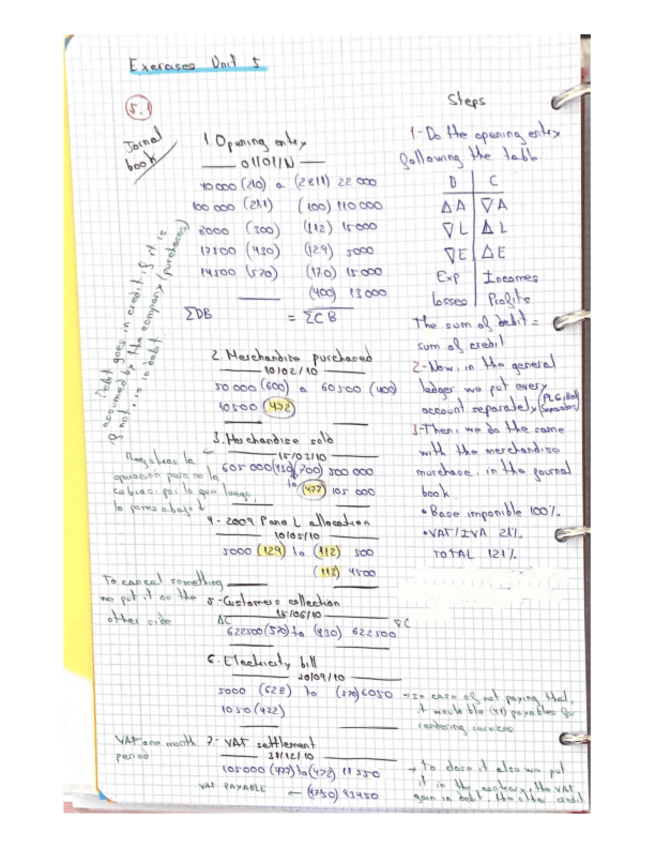 Exercises Unit 5
5.1
Jornal
book
1. Opening entry
01/01/N
40 000 (210) a (2811) 22 000
100 000 (211) (100) 110 000
8000 (300) (112) 15000
17500 (430) (129) 5000
14500 (570) (170) 15 000
(400) 13 000
ΣDB = ΣCB
Debt goes in credit if it is
assumed by the company (purchases)
if not, is in debt.
2. Merchandise purchased
10/02/10
50 000 (600) a 60500 (400)
10500 (472)
3. Merchandise sold
15/03/10
605 000 (430) (700) 500 000
to (477) 105 000
Registras la
operación pero no la
cobras, por lo que luego
lo pones abajo ↓
4- 2009 P and L allocation
10/05/10
5000 (129) to (112) 500
(113) 4500
To cancel something
we put it on the
other side
5-Customers collection
15/06/10
ΔC ∇C
622500 (570) to (430) 622500
6. Electricity bill
20/09/10
5000 (628) to (570) 6050
1050 (472)
→ In case of not paying that,
it would be (41) payables for
rendering services
VAT one month
period
7- VAT settlement
31/12/10
105000 (477) to (472) 11 550
VAT PAYABLE ← (4750) 93450
→ To close it also we put
it in the contrary, the VAT
goin in debt, the other credit
Steps
1- Do the opening entry
following the tabb.
D C
ΔA ∇A
∇L ΔL
∇E ΔE
Exp Incomes
losses Profits
The sum of debit =
sum of credit
2- Now, in the general
ledger we put every
account separately
3- Then, we do the same
with the merchandise
murchase, in the journal
book.
• Base imponible 100%
• VAT/IVA 21%
TOTAL 121%